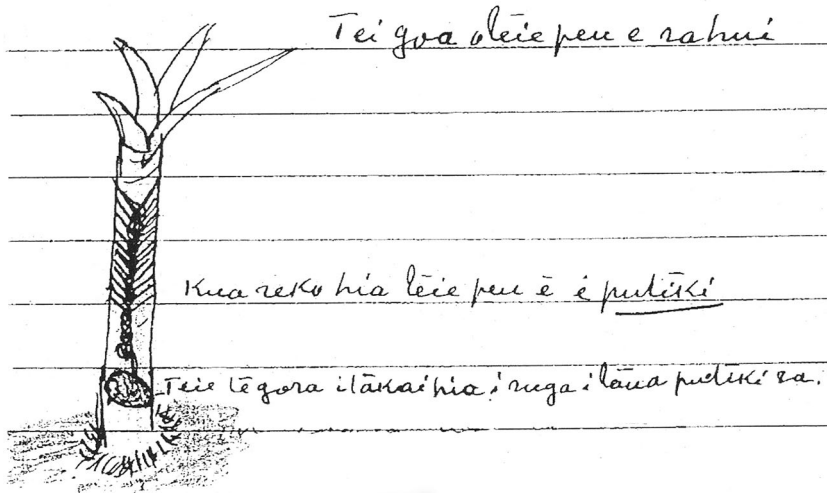 Tei goa o tēie peu e rahui
Kua reko hia tēie peu ē e putīki
Teie tēgora i tākai hia i ruga i tāua putīki ra.